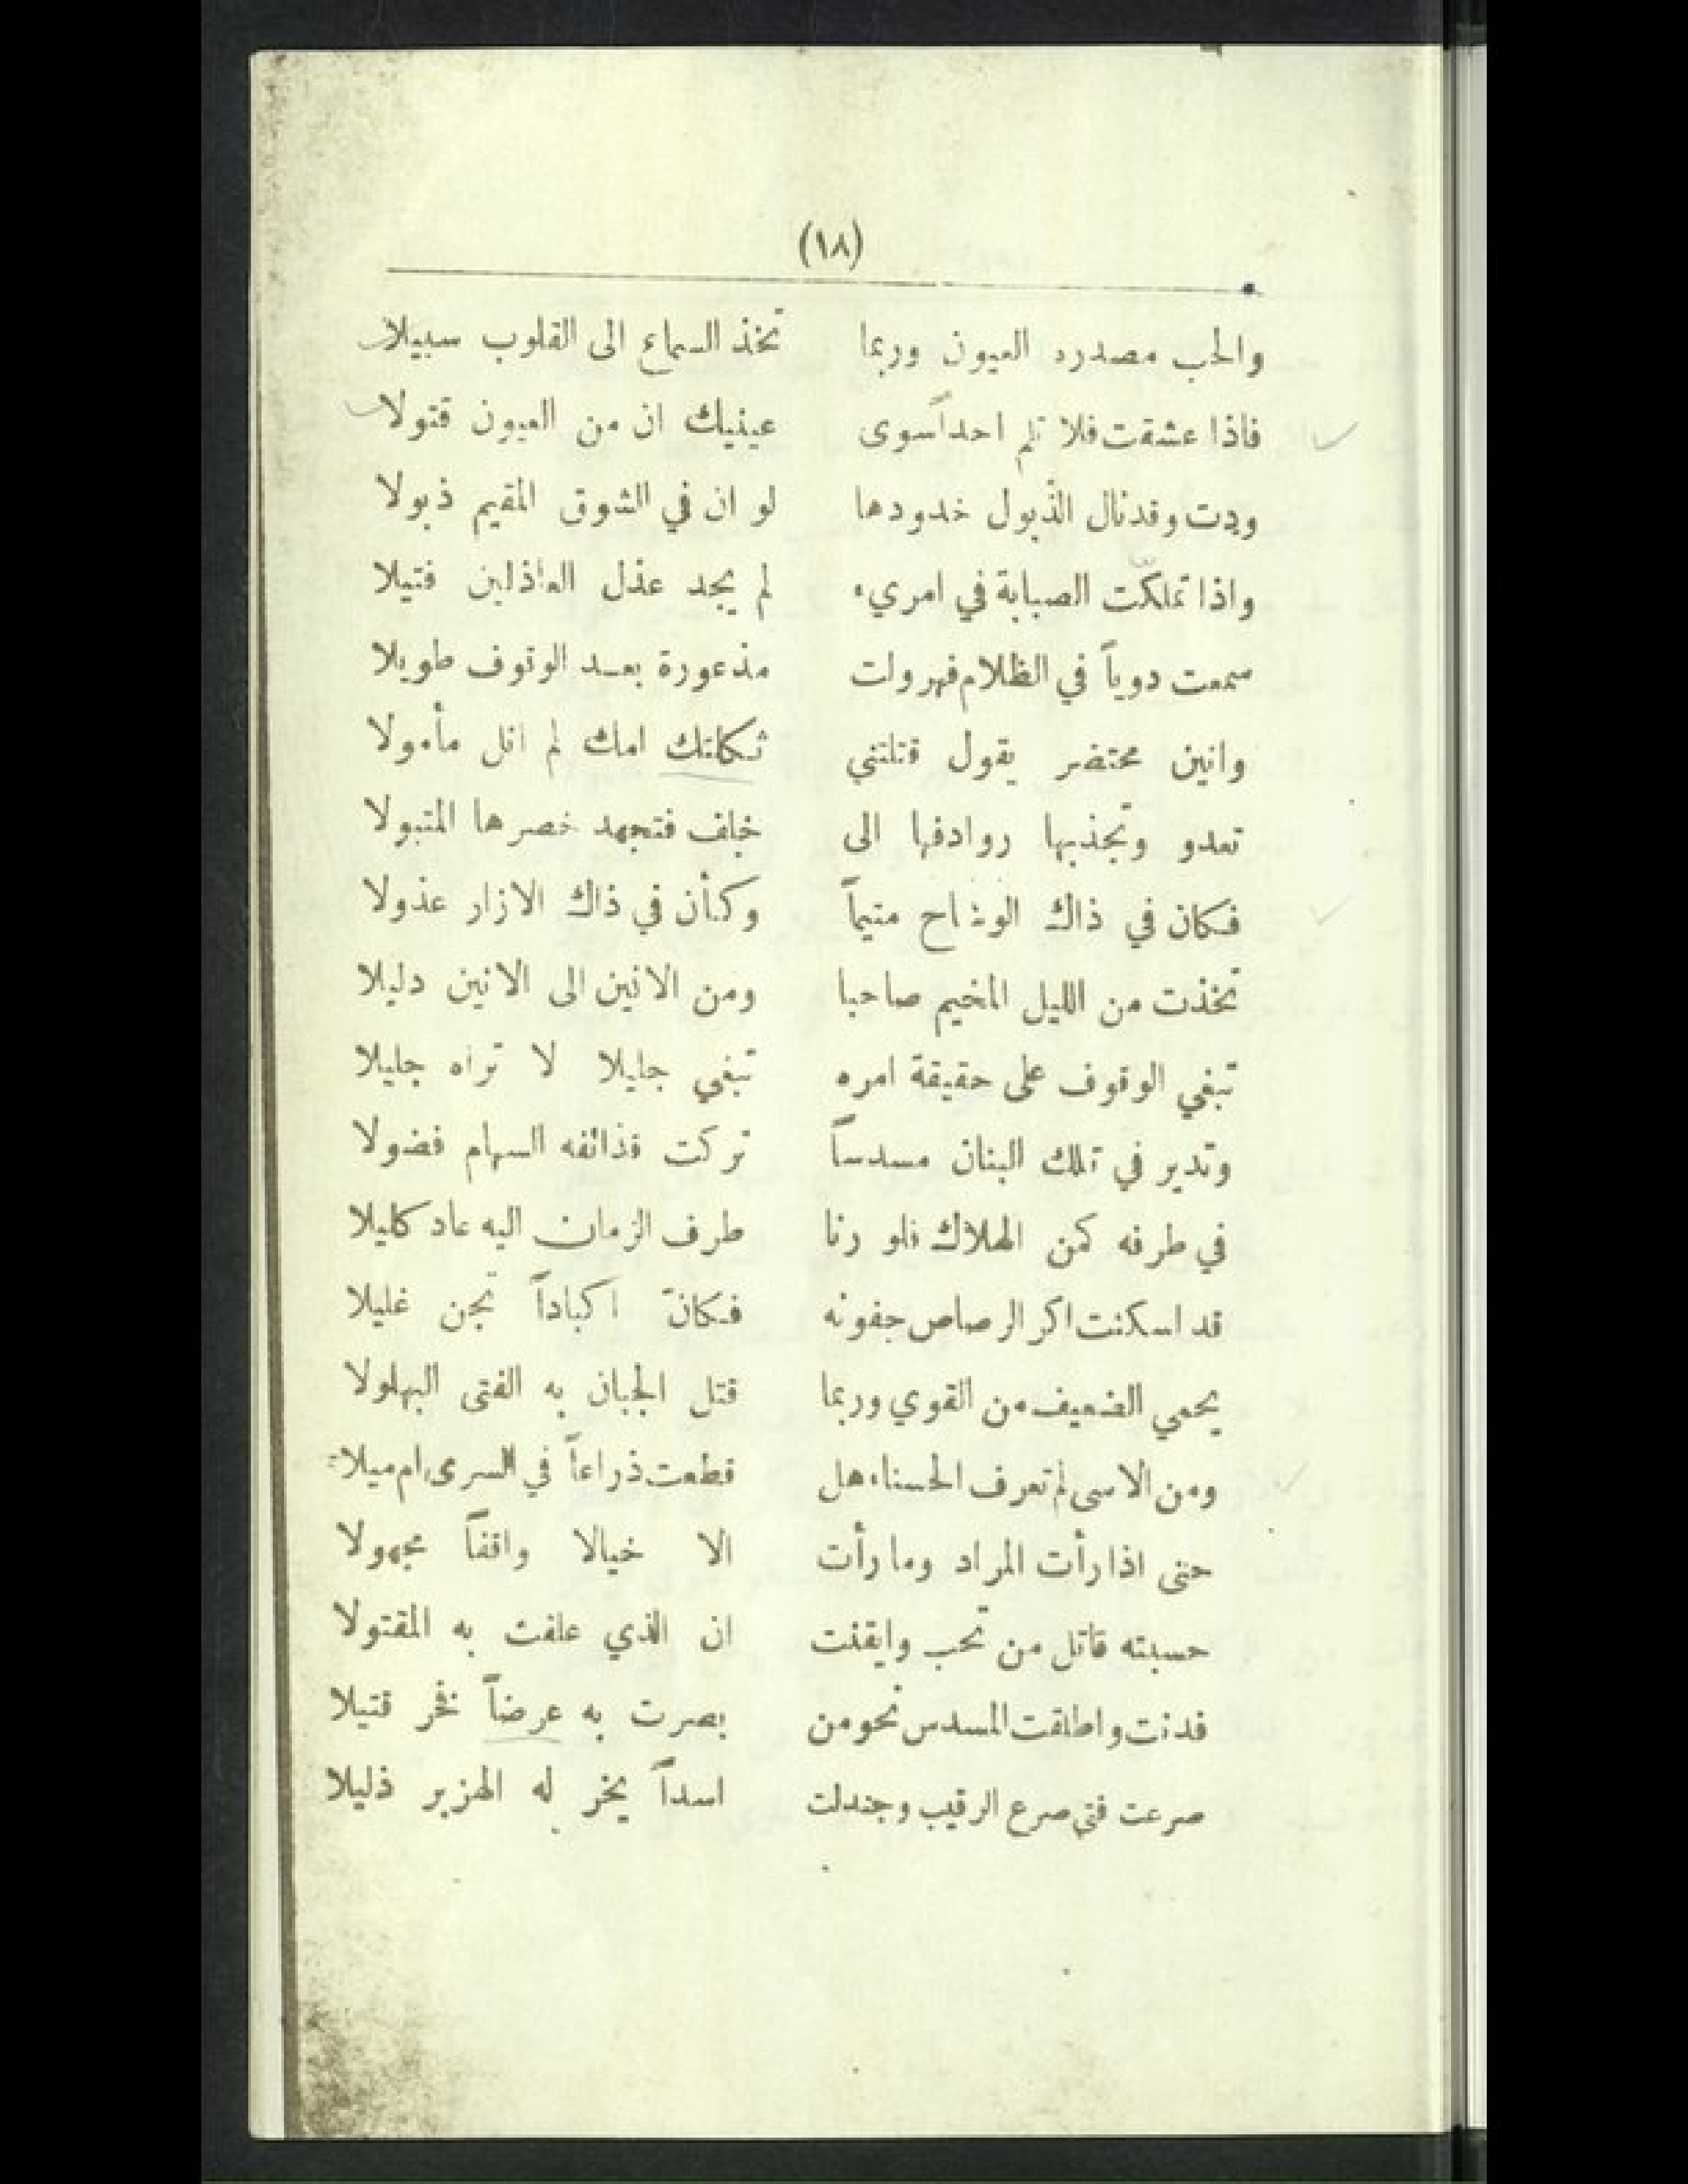 (١٨)
والحب مصدره العيون وربما تخذ السماع الى القلوب سبيلا
فاذا عشقت فلا تلم احداً سوى عينيك ان من العيون قتولا
ودت وقد نال الذبول خدودها لو ان في الشوق المقيم ذبولا
واذا تملكّت الصبابة في امريء لم يجد عذل العاذلين فتيلا
سمعت دوياً في الظلام فهرولت مذعورة بعد الوقوف طويلا
وانين محتضر يقول قتلتني ثكلتك امك لم انل مأمولا
تعدو وتجذبها روادفها الى خلف فتجهد خصرها المتبولا
فكان في ذاك الوشاح متيماً وكأن في ذاك الازار عذولا
تخذت من الليل المخيم صاحبا ومن الانين الى الانين دليلا
تبغي الوقوف على حقيقة امره تبغي جليلا لا تراه جليلا
وتدير في تلك البنان مسدساً تركت قذائفه السهام فضولا
في طرفه كمن الهلاك فلو رنا طرف الزمان اليه عاد كليلا
قد اسكنت اكر الرصاص جفونه فكانّ اكباداً تجن غليلا
يحمي الضعيف من القوي وربما قتل الجبان به الفتى البهلولا
ومن الاسى لم تعرف الحسناء هل قطعت ذراعاً في السرى ام ميلا
حتى اذا رأت المراد وما رأت الا خيالا واقفاً مجهولا
حسبته قاتل من تحب وايقنت ان الذي علقت به المقتولا
فدنت واطلقت المسدس نحو من بصرت به عرضاً فخر قتيلا
صرعت فتى صرع الرقيب وجندلت اسداً يخر له الهزبر ذليلا